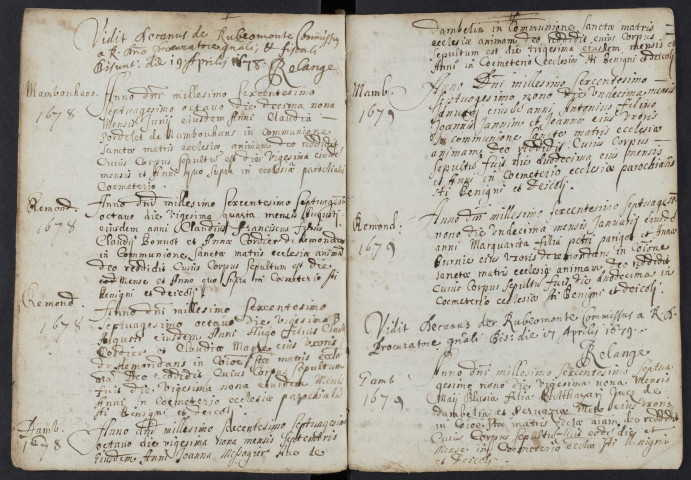 Vidit Decanus de Rubeomonte Commissus
a R. Dno Procuratore gnali et fiscali
Bisunt. die 19 Aprilis 1678.
Relange
Mambouhans.
1678
Anno dni millesimo sexcentesimo
septuagesimo octavo die decima nona
mensis Junij eiusdem Anni Claudia
Cordier de Mambouhans in communione
sanctæ matris ecclesiæ, animam deo reddidit
Cuius Corpus sepultus est die vigesima eiusdem
mensis et Anno quo supra in ecclesia parochiali
Coemeterio.
Remond.
1678
Anno dni millesimo sexcentesimo septuagesimo
octavo die vigesima quarta mensis Augusti
eiusdem anni Claudius Franciscus filius
Claudij Bonvot et Annæ Cordier de Remondans
in Communione Sanctæ matris ecclesiæ animam
deo reddidit Cuius Corpus sepultum est die
mense et Anno quo supra in Coemeterio Sti
Benigni et deicoli.
Remond.
1678
Anno dni millesimo sexcentesimo
septuagesimo octavo die vigesima 8
Augusti eiusdem Anni Hugo filius Claudij
Cordier et Claudiæ eius uxoris
de Remondans in Coione Stæ matris eccle
deo reddidit Cuius Corpus sepultum
fuit die vigesima nona eiusdem mensis
Anni, in coemeterio ecclesiæ parochialis
Sti Benigni et deicoli.
Damb.
1678
Anno dni millesimo sexcentesimo septuagesimo
octavo die vigesima nona mensis septembris
eiusdem Anni Joanna Messagier de
dambelin in Communione sanctæ matris
ecclesiæ animam deo reddidit, cuius Corpus
sepultum est die trigesima eiusdem mensis et
Anni in Coemeterio Ecclesiæ Sti Benigni et deicoli
Mamb.
1679
Anno Dni millesimo sexcentesimo
septuagesimo nono die undecima mensis
Januarij eiusdem anni Antonius filius
Joannis Jannin et Joannæ eius uxoris
in communione Sanctæ matris ecclesiæ
animam deo reddidit. Cuius Corpus
sepultus fuit die duodecima eius mensis
et Anni in Coemeterio ecclesiæ parochialis
Sti Benigni et deicoli.
Remond:
1679
Anno dni millesimo sexcentesimo septuagesimo
nono die undecima mensis Januarij eiusdem
anni Margarita filia petri parigot et Annæ
eius uxoris de Remondans in Coione
sanctæ matris ecclesiæ animam deo reddidit
cuius Corpus sepultus fuit die duodecima in
Coemeterio ecclesiæ Sti Benigni et deicoli.
Vidit Decanus der Rubeomonte Commissus a R. D.
Procuratore gnali Bis: die 17 Aprilis 1679.
Relange
Damb
1679
Anno dni millesimo sexcentesimo septua
gesimo nono die vigesima nona mensis
Maij Blasia filia Balthazar de
dambelin et eius uxoris
in Coione Stæ matris ecclæ aiam deo reddidit
Cuius Corpus sepultus fuit eode die et
mense in coemeterio ecclæ Sti Benigni
et deicoli.